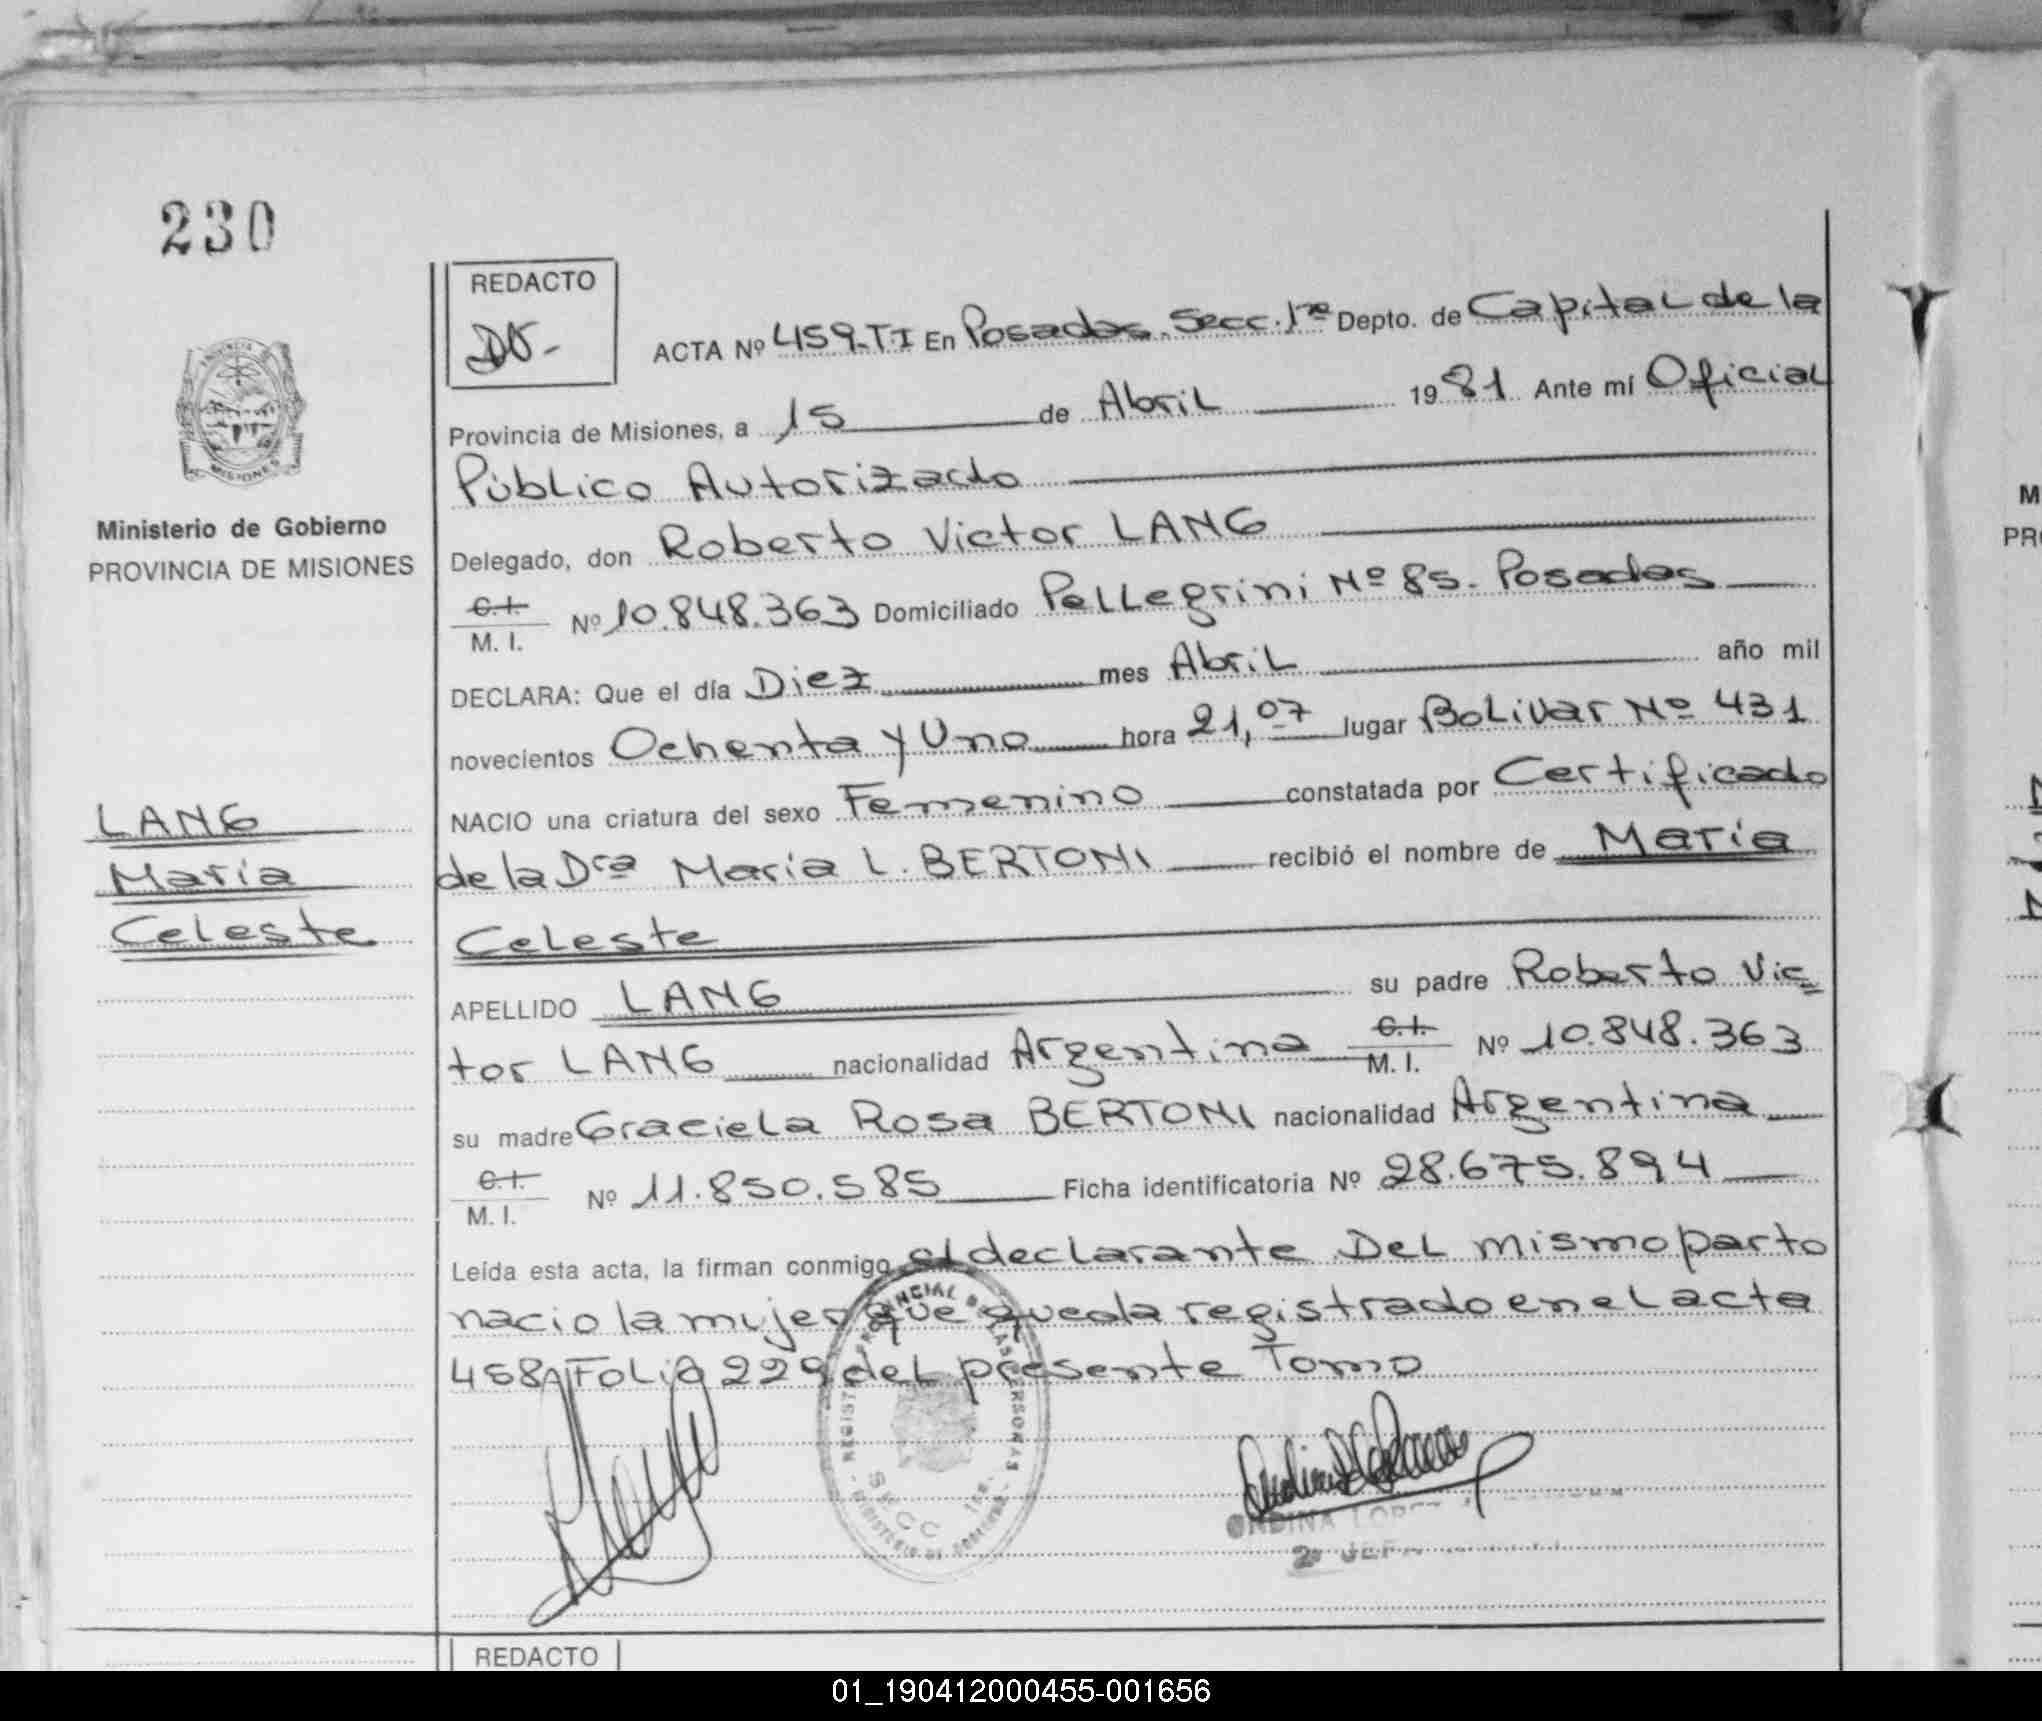 230
REDACTO
ACTA Nº 459-T.I En Posadas. Secc. 1ra Depto. de Capital de la
Provincia de Misiones, a 15 de Abril 1981 Ante mí Oficial
Público Autorizado
Ministerio de Gobierno
PROVINCIA DE MISIONES
Delegado, don Roberto Victor LANG
C.I. M. I. Nº 10.848.363 Domiciliado Pellegrini Nº 85. Posadas
DECLARA: Que el día Diez mes Abril año mil
novecientos Ochenta y Uno hora 21,07 lugar Bolivar Nº 431
NACIO una criatura del sexo Femenino constatada por Certificado
LANG
María
Celeste
de la Dra María L. BERTONI recibió el nombre de María
Celeste
APELLIDO LANG su padre Roberto Vic=
tor LANG nacionalidad Argentina C.I. M. I. Nº 10.848.363
su madre Graciela Rosa BERTONI nacionalidad Argentina
C.I. M. I. Nº 11.850.585 Ficha identificatoria Nº 28.675.894
Leída esta acta, la firman conmigo el declarante Del mismo parto
nacio la mujer que queda registrado en el acta
458 Folio 229 del presente Tomo
PROVINCIA DE MISIONES
REGISTRO PROVINCIAL DE LAS PERSONAS
SECC 1ra.
MINISTERIO DE GOBIERNO
ONDINA LOPEZ
2º JEFA
REDACTO
01_190412000455-001656